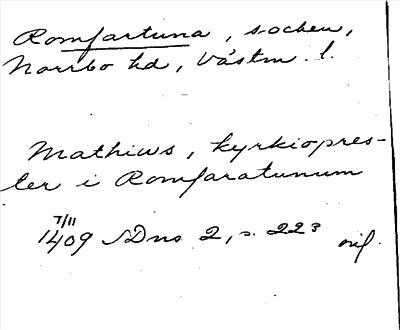 Romfartuna, socken,
Norrbo hd, Västm. l.
Mathius, kyrkiopres-
ter i Romfaratunum
7/11
1409 SDns 2, s. 223
orig.